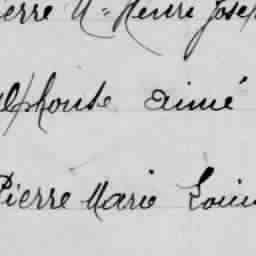 Pierre M= Henri Josep
Alphonse Aimé
Pierre Marie Louis